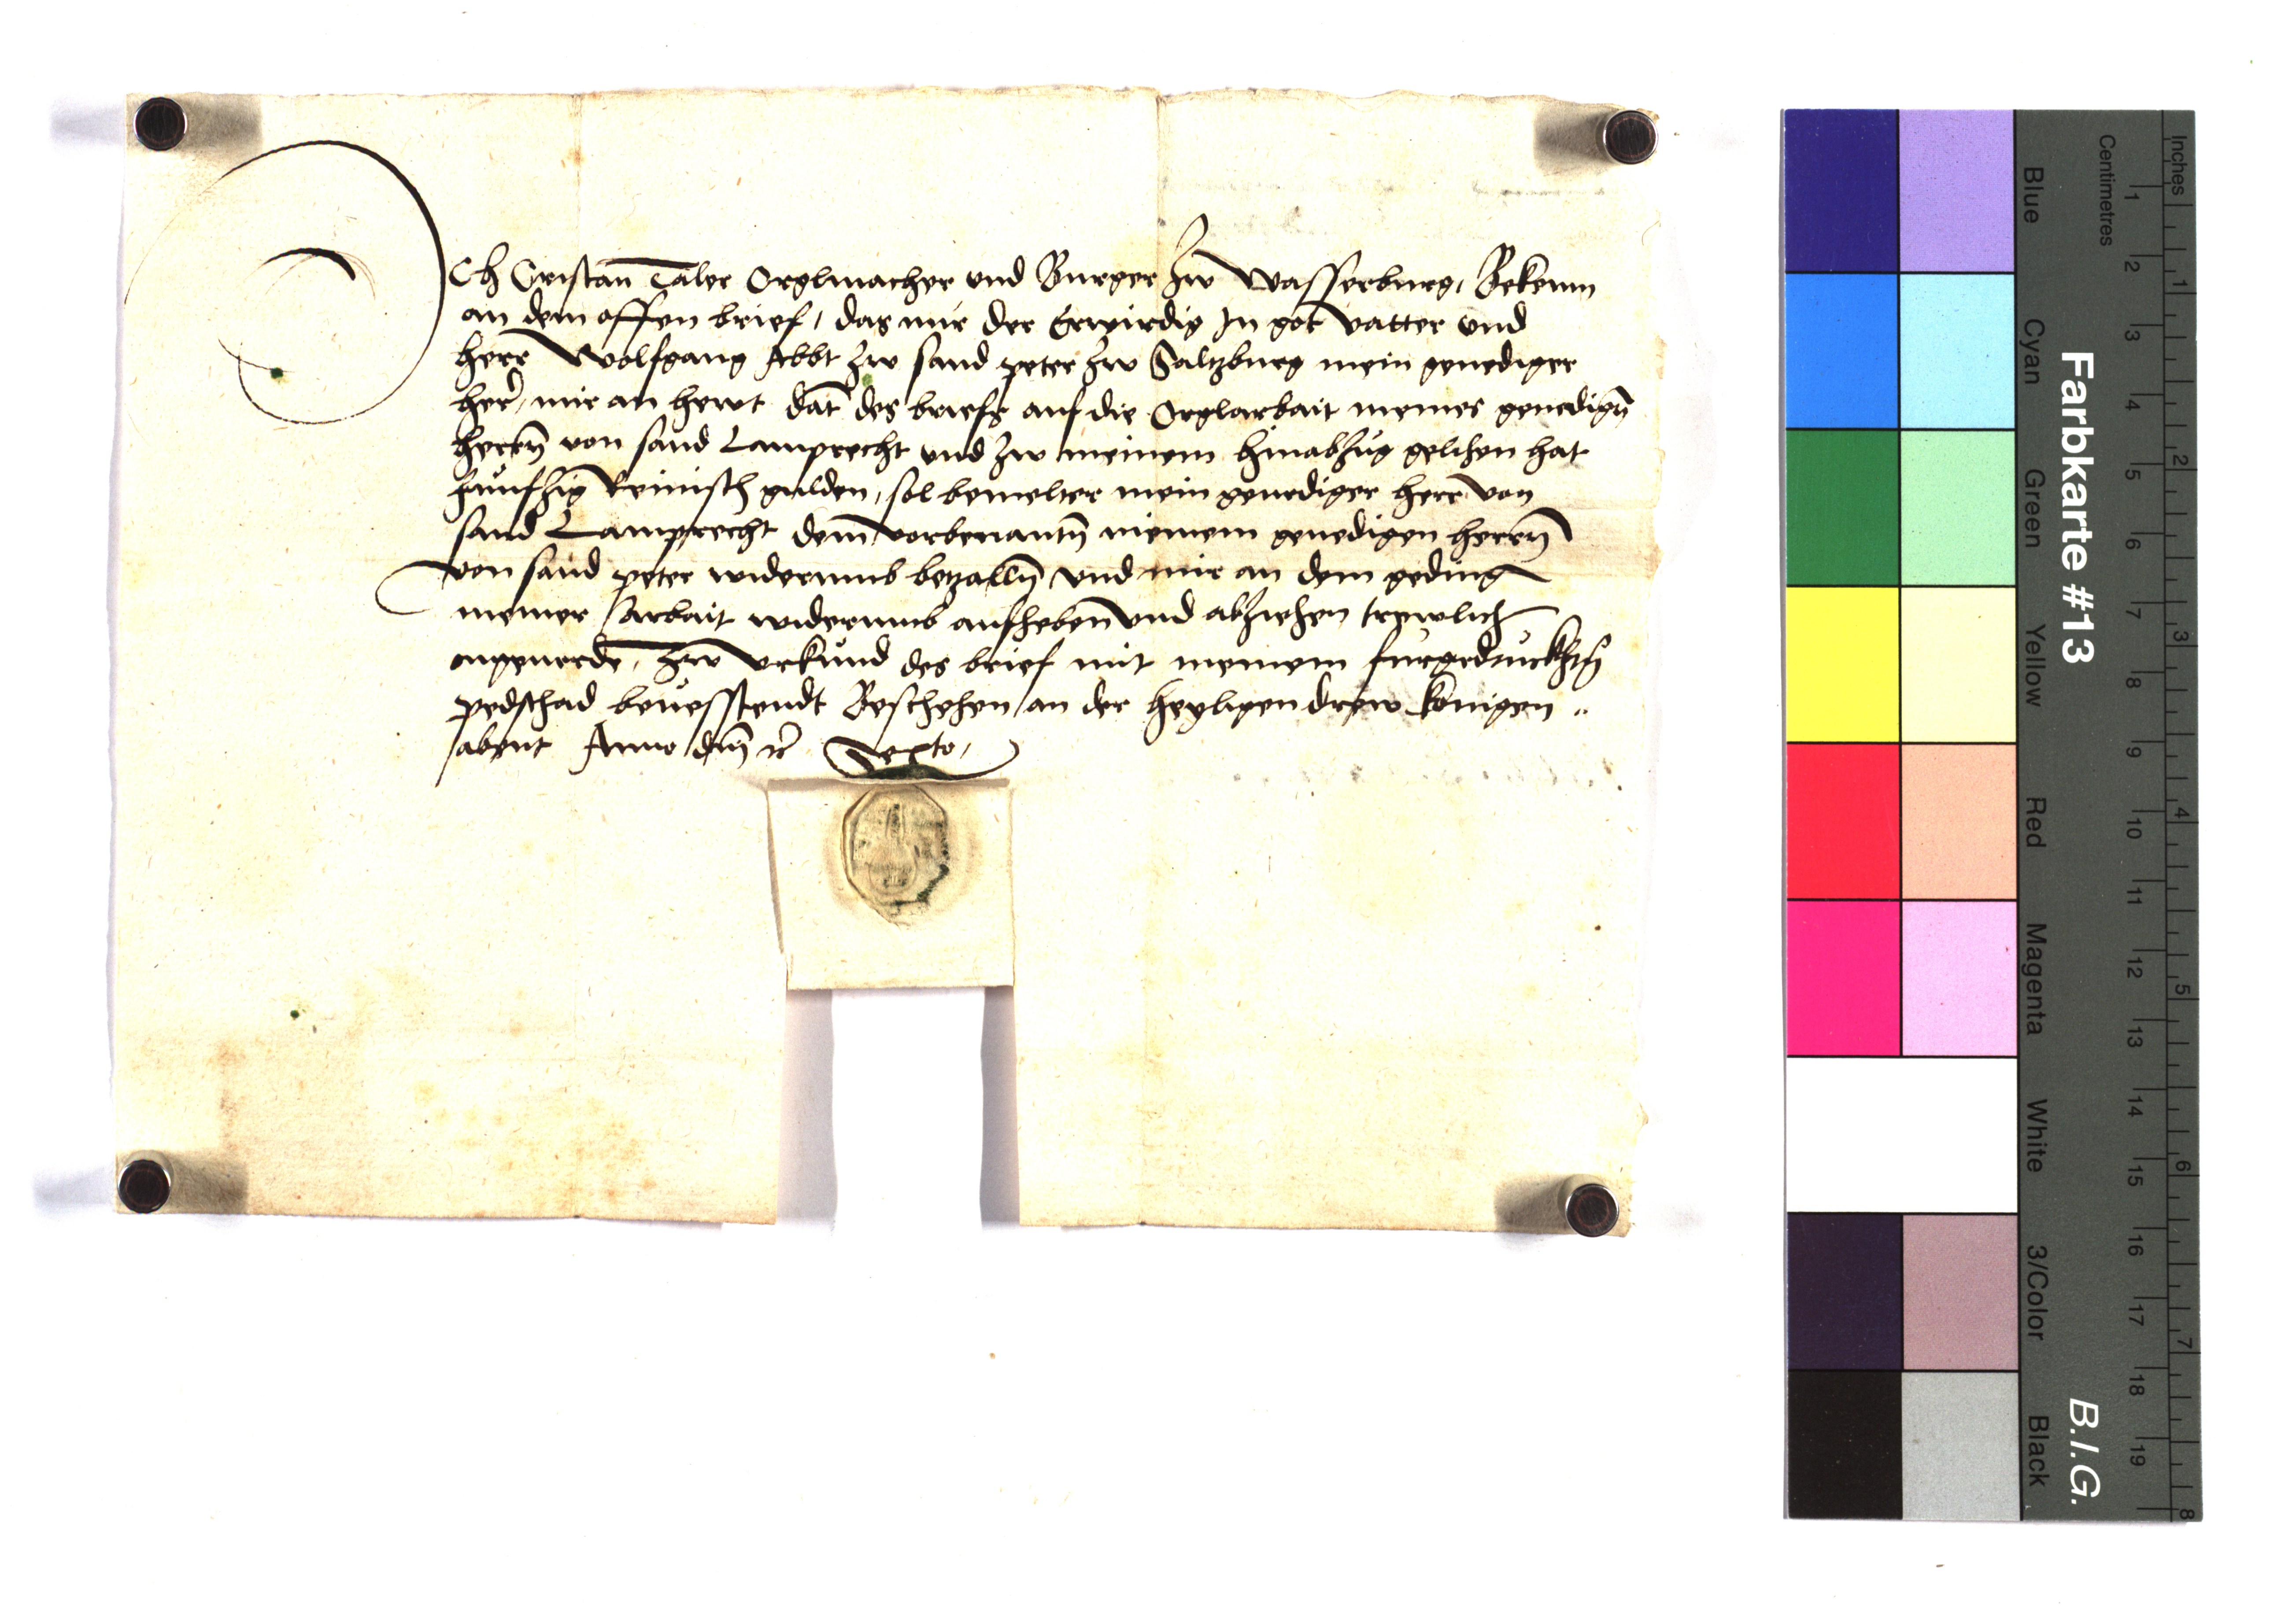 Ich Cristan Taler Orglmacher vnd Burger Zw Wasserburg, Bekenn
an dem offen brief, das mir der Erwirdig In got vatter vnd
herr Wolfgang Abbt Zw sand peter Zw Saltzburg mein genediger
her, mir an hewt dat des briefs auf die Orglarbait meines genedign̄
herrn̄ von sand Lamprecht vnd Zw meinem hinabzug gelihen hat
funfzig Reinisch gulden, sol bemelter mein genediger herr von
sand Lamprecht dem vorbenantn̄ meinem genedigen herrn̄
von sand peter widerumb betzalln̄ vnd mir an dem geding
meiner arbait widerumb aufheben vnd abziehen trewlich
ongeuerde, Zw vrkund des brief mit meinem furgedruckhtn̄
pedschad beuesstendt Beschehen an der heyligen drew konigen
abent Anno dm̄ rc Sexto,
Farbkarte #13
B.I.G.
Centimetres
Inches
Blue
Cyan
Green
Yellow
Red
Magenta
White
3/Color
Black
1 2 3 4 5 6 7 8 9 10 11 12 13 14 15 16 17 18 19
1 2 3 4 5 6 7 8